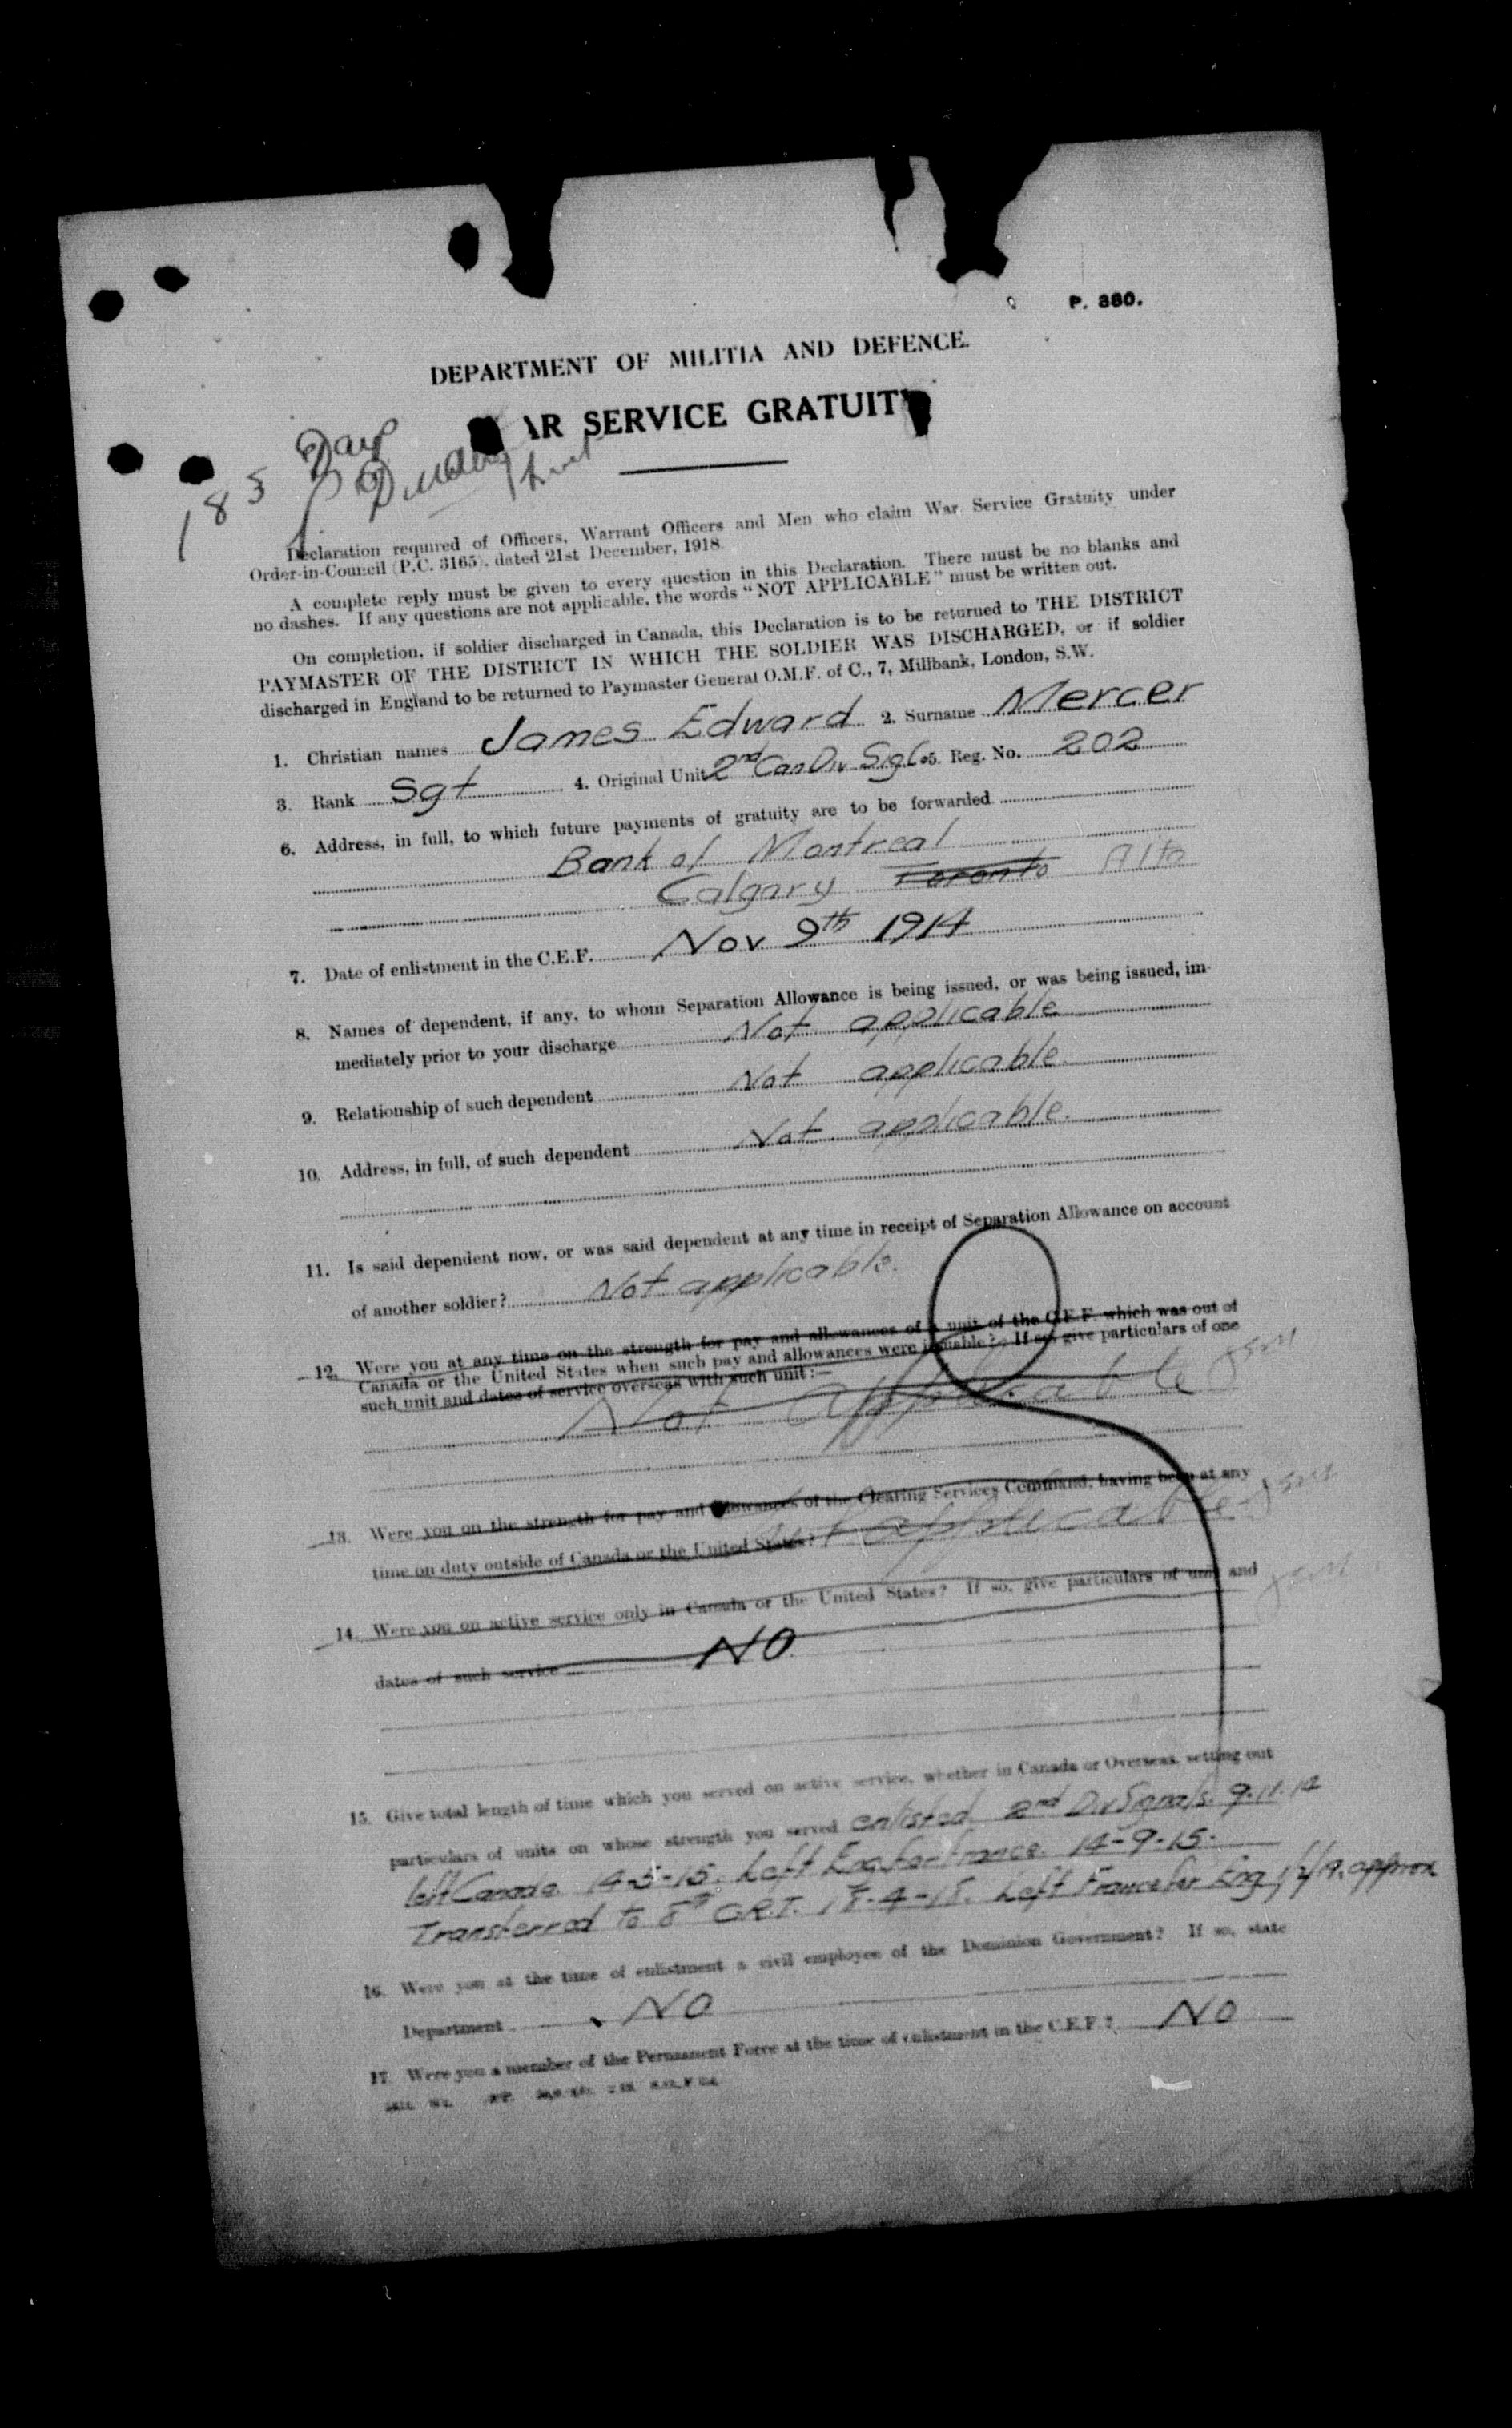 P. 380.
DEPARTMENT OF MILITIA AND DEFENCE.
AR SERVICE GRATUIT
183 Days
Declaration required of Officers, Warrant Officers and Men who claim War Service Gratuity under
Order-in-Council (P.C. 3165), dated 21st December, 1918.
A complete reply must be given to every question in this Declaration. There must be no blanks and
no dashes. If any questions are not applicable, the words "NOT APPLICABLE" must be written out.
On completion, if soldier discharged in Canada, this Declaration is to be returned to THE DISTRICT
PAYMASTER OF THE DISTRICT IN WHICH THE SOLDIER WAS DISCHARGED, or if soldier
discharged in England to be returned to Paymaster General O.M.F. of C., 7, Millbank, London, S.W.
1. Christian names James Edward 2. Surname Mercer
3. Rank Sgt 4. Original Unit 2nd Can Div Sig Co 5. Reg. No. 202
6. Address, in full, to which future payments of gratuity are to be forwarded
Bank of Montreal
Calgary Toronto Alta
7. Date of enlistment in the C.E.F. Nov 9th 1914
8. Names of dependent, if any, to whom Separation Allowance is being issued, or was being issued, im-
mediately prior to your discharge Not applicable
9. Relationship of such dependent Not applicable
10. Address, in full, of such dependent Not applicable.
11. Is said dependent now, or was said dependent at any time in receipt of Separation Allowance on account
of another soldier? Not applicable.
12. Were you at any time on the strength for pay and allowances of a unit of the C.E.F. which was out of
Canada or the United States when such pay and allowances were issuable? If so, give particulars of one
such unit and dates of service overseas with such unit:—
Not applicable
13. Were you on the strength for pay and allowances of the Clearing Services Command, having been at any
time on duty outside of Canada or the United States? Not applicable
14. Were you on active service only in Canada or the United States? If so, give particulars of unit and
dates of such service NO
15. Give total length of time which you served on active service, whether in Canada or Overseas, setting out
particulars of units on whose strength you served enlisted 2nd Div Signals. 9.11.14
left Canada 14-5-15. Left Eng for France. 14-9-15.
Transferred to 8th C.R.T. 18-4-18. Left France for Eng approx
16. Were you at the time of enlistment a civil employee of the Dominion Government? If so, state
Department NO
17. Were you a member of the Permanent Force at the time of enlistment in the C.E.F.? NO